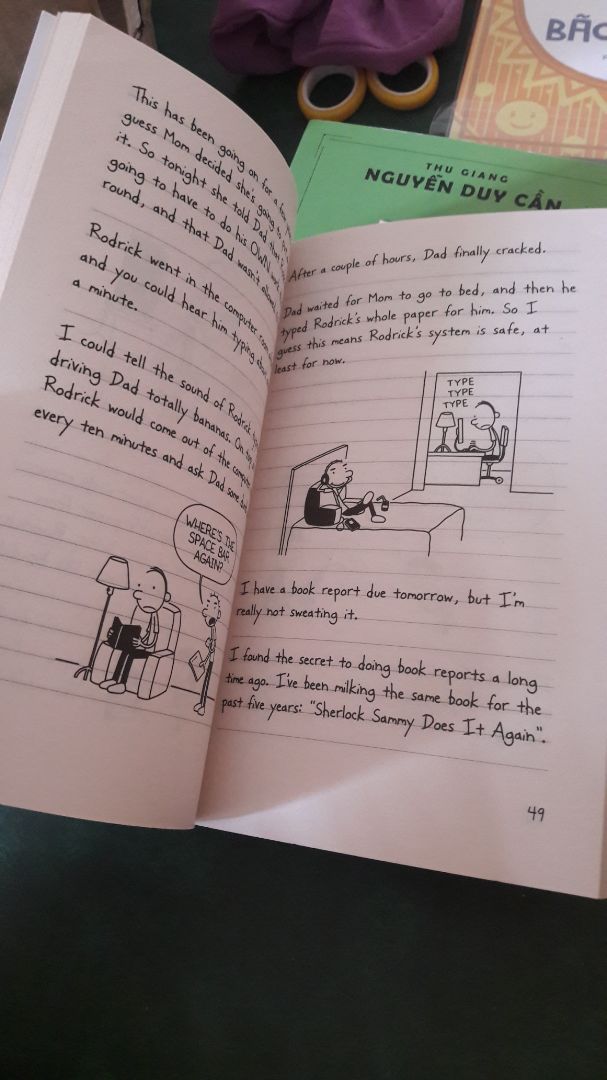 This has been going on for a few
guess Mom decided she's going to
it. So tonight she told Dad that
going to have to do his own
round, and that Dad wasn't
Rodrick went in the computer room
and you could hear him typing about
a minute.
I could tell the sound of Rodrick
driving Dad totally bananas. On
Rodrick would come out of the computer
every ten minutes and ask Dad some
WHERE'S THE
SPACE BAR
AGAIN?
After a couple of hours, Dad finally cracked.
Dad waited for Mom to go to bed, and then he
typed Rodrick's whole paper for him. So I
guess this means Rodrick's system is safe, at
least for now.
TYPE
TYPE
TYPE
I have a book report due tomorrow, but I'm
really not sweating it.
I found the secret to doing book reports a long
time ago. I've been milking the same book for the
past five years: "Sherlock Sammy Does It Again".
49
THU GIANG
NGUYỄN DUY CẦN
BÃO